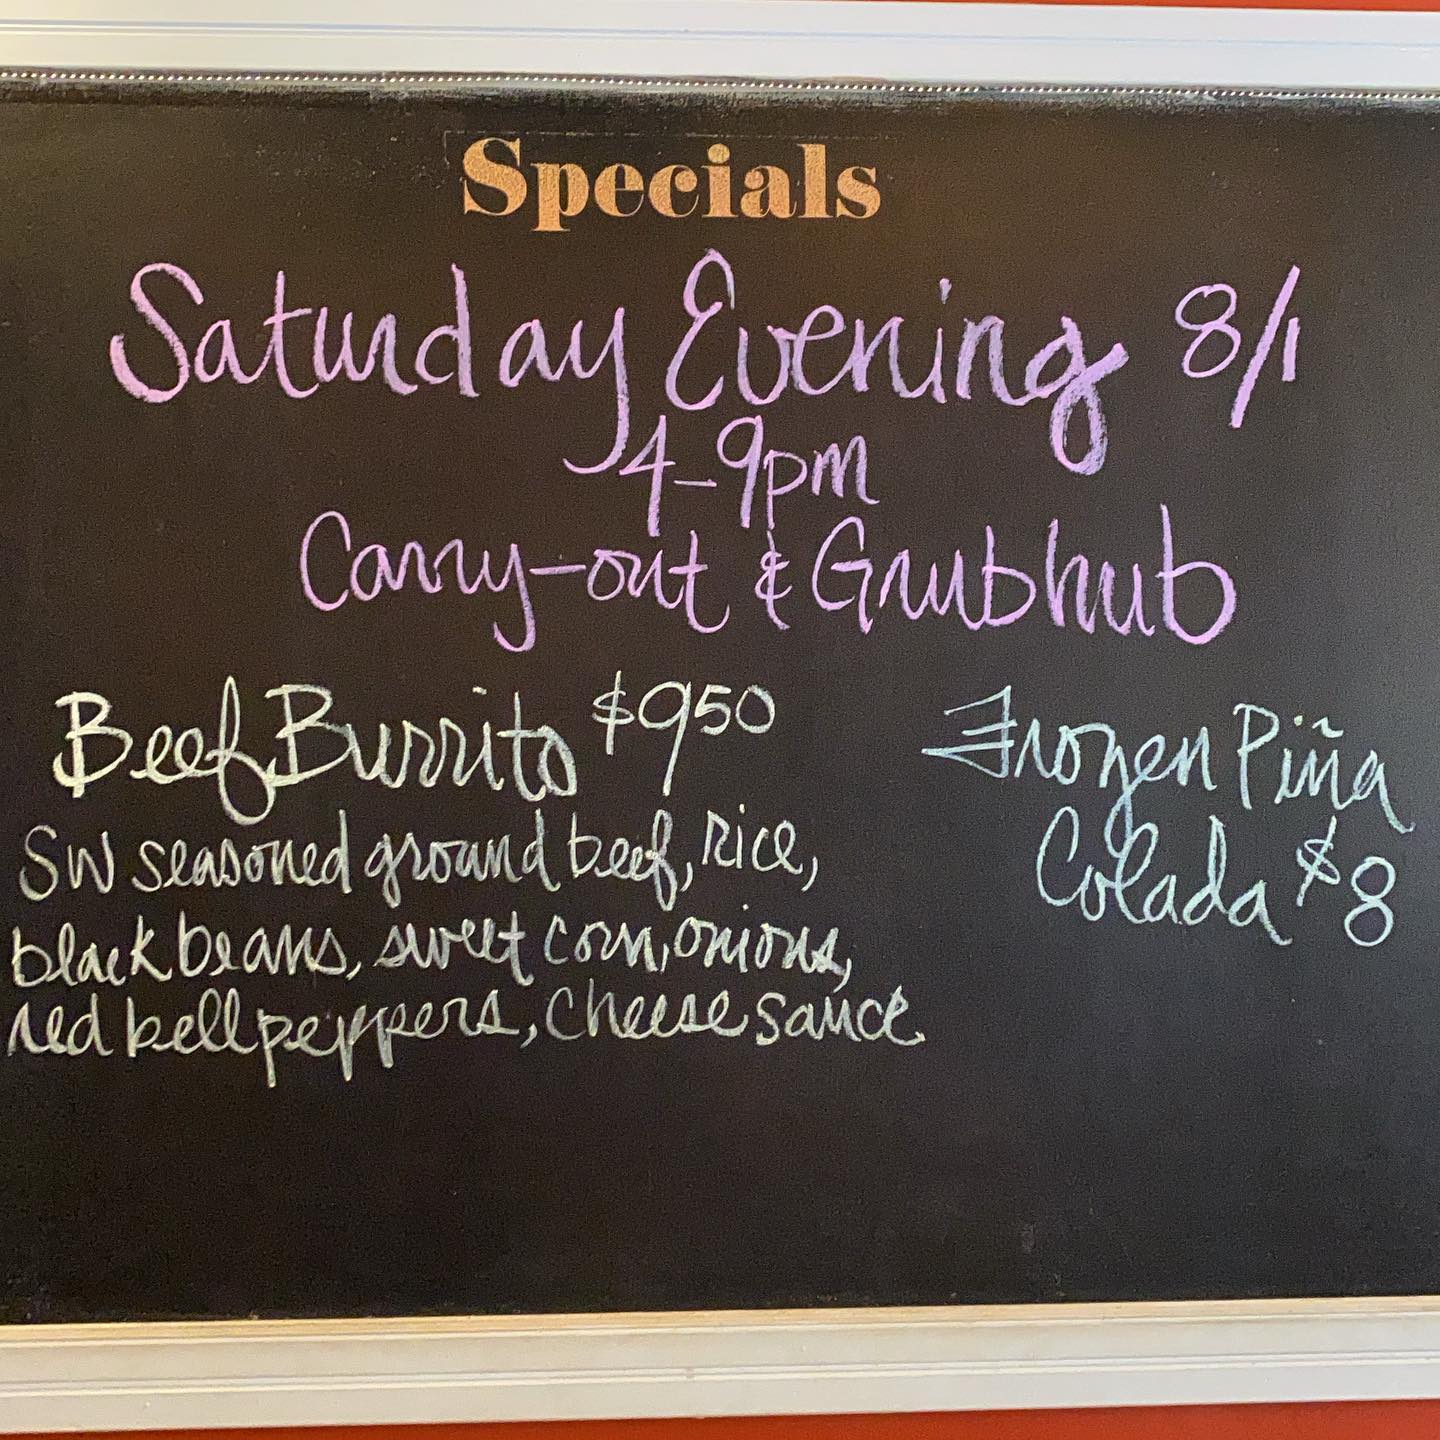 Specials
Saturday Evening 8/1
4-9pm
Carry-out & Grubhub
Beef Burrito $950
SW seasoned ground beef, rice,
black beans, sweet corn, onions,
red bell peppers, cheese sauce
Frozen Piña
Colada $8